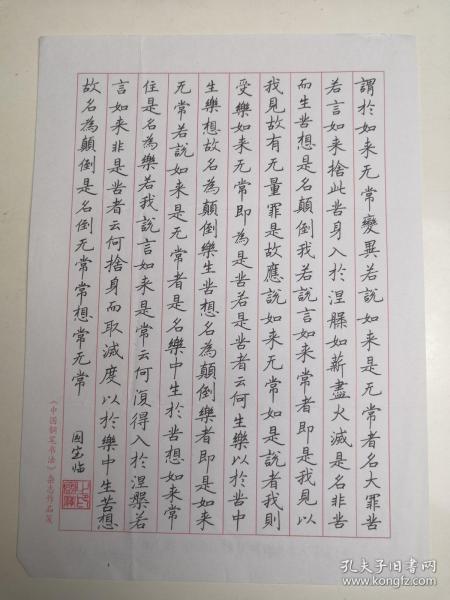 謂於如来无常變異若說如来是无常者名大罪苦
若言如来捨此苦身入於涅槃如薪盡火滅是名非苦
而生苦想是名顛倒我若說言如来常者即是我見以
我見故有无量罪是故應說如来无常如是說者我則
受樂如来无常即為是苦若是苦者云何生樂以於苦中
生樂想故名為顛倒樂生苦想名為顛倒樂者即是如来
无常若說如来是无常者是名樂中生於苦想如来常
住是名為樂若我說言如来是常云何復得入於涅槃若
言如来非是苦者云何捨身而取滅度以於樂中生苦想
故名為顛倒是名倒无常常想常无常
国宝临
《中国钢笔书法》杂志作品笺
孔夫子旧书网